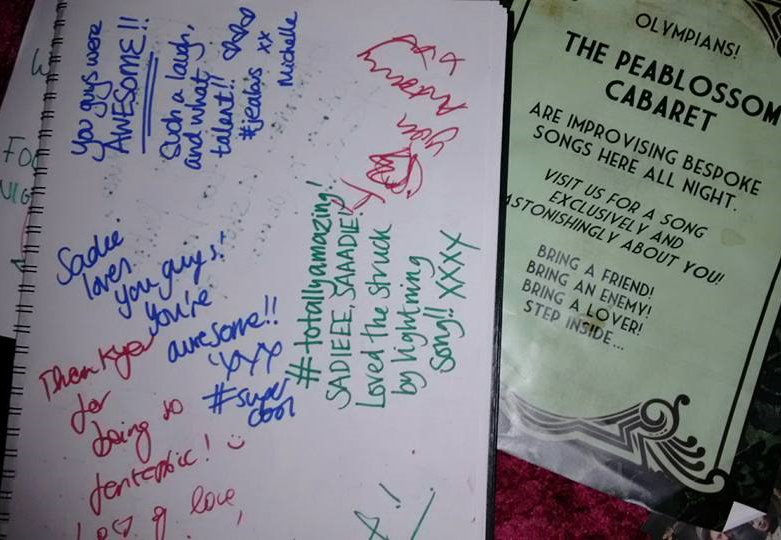 you guys were
AWESOME!!
Such a laugh,
and what
talent!!
#jealous xx
Michelle
Sadie
loves
you guys!
you're
awesome!!
XXX
#super
cool
#totallyamazing!
SADIEEE, SAAADIE!
Loved the struck
by lightning
song!! XXXX
Thankyou
for
being so
fantastic!
Lots of love,
OLYMPIANS!
THE PEABLOSSOM
CABARET
ARE IMPROVISING BESPOKE
SONGS HERE ALL NIGHT.
VISIT US FOR A SONG
EXCLUSIVELY AND
ASTONISHINGLY ABOUT YOU!
BRING A FRIEND!
BRING AN ENEMY!
BRING A LOVER!
STEP INSIDE...